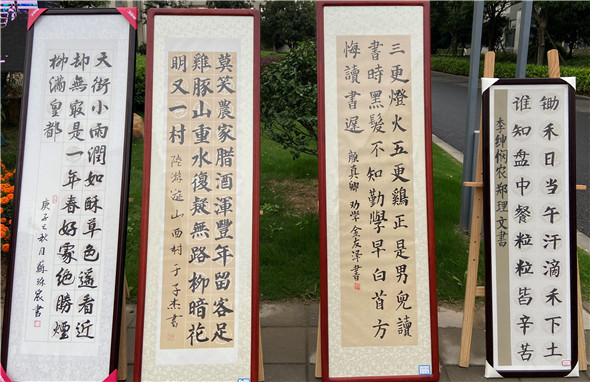 天街小雨潤如酥草色遥看近
却無最是一年春好處絕勝煙
柳滿皇都
庚子之秋月蘇宸書
莫笑農家腊酒渾豐年留客足
雞豚山重水復疑無路柳暗花
明又一村
陸游遊山西村于子杰書
三更燈火五更鷄正是男兒讀
書時黑髮不知勤學早白首方
悔讀書遲
顔真卿劝學金友泽書
锄禾日当午汗滴禾下土
谁知盘中餐粒粒皆辛苦
李绅悯农郑理文書